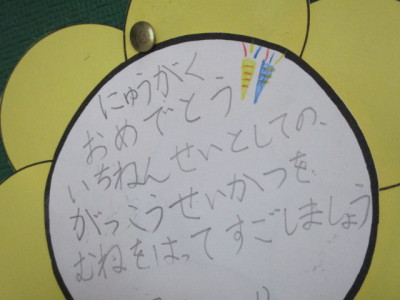 にゅうがく
おめでとう
いちねんせいとしての、
がっこうせいかつを
むねをはってすごしましょう